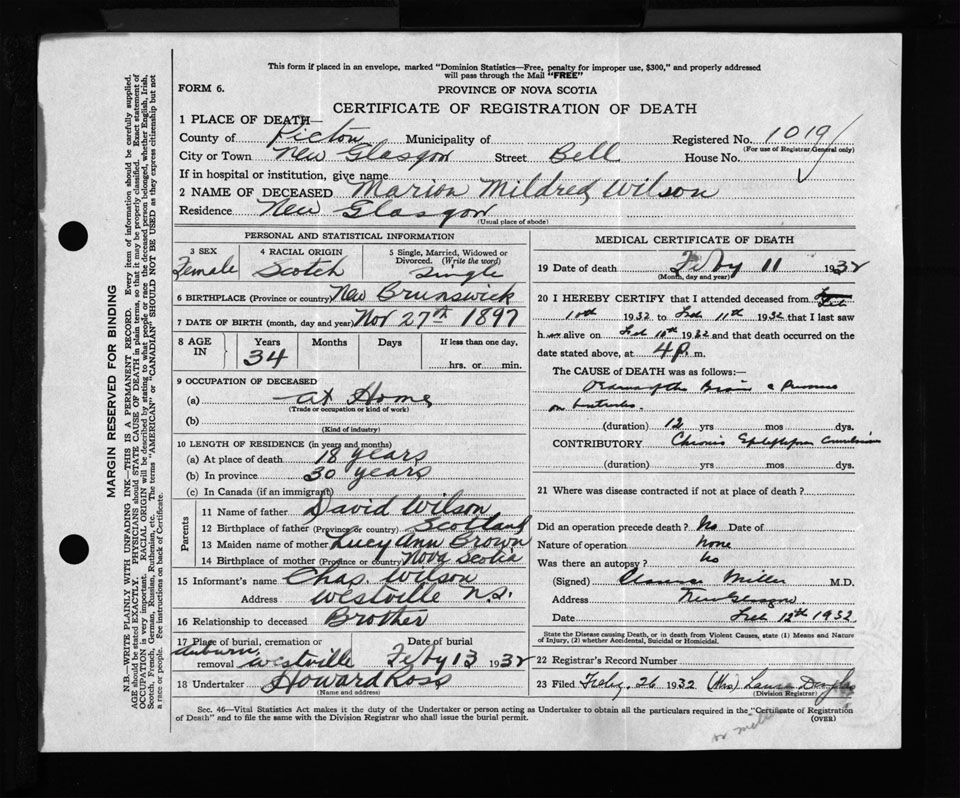 This form if placed in an envelope, marked "Dominion Statistics—Free, penalty for improper use, $300," and properly addressed
will pass through the Mail "FREE"
FORM 6.
PROVINCE OF NOVA SCOTIA
CERTIFICATE OF REGISTRATION OF DEATH
1 PLACE OF DEATH—
County of Pictou Municipality of Registered No. 1019
(For use of Registrar General only)
City or Town New Glasgow Street Bell House No.
If in hospital or institution, give name
2 NAME OF DECEASED Marion Mildred Wilson
Residence New Glasgow
(Usual place of abode)
PERSONAL AND STATISTICAL INFORMATION
3 SEX Female
4 RACIAL ORIGIN Scotch
5 Single, Married, Widowed or
Divorced. (Write the word)
Single
6 BIRTHPLACE (Province or country) New Brunswick
7 DATE OF BIRTH (month, day and year) Nov 27th 1897
8 AGE IN Years 34 Months Days If less than one day,
hrs. or min.
9 OCCUPATION OF DECEASED
(a) at Home
(Trade or occupation or kind of work)
(b)
(Kind of industry)
10 LENGTH OF RESIDENCE (in years and months)
(a) At place of death 18 years
(b) In province 30 years
(c) In Canada (if an immigrant)
Parents
11 Name of father David Wilson
12 Birthplace of father (Province or country) Scotland
13 Maiden name of mother Lucy Ann Brown
14 Birthplace of mother (Province or country) Nova Scotia
15 Informant's name Chas. Wilson
Address Westville N.S.
16 Relationship to deceased Brother
17 Place of burial, cremation or Date of burial
Auburn,
removal Westville Feby 13 1932
18 Undertaker Howard Ross
(Name and address)
MEDICAL CERTIFICATE OF DEATH
19 Date of death Feby 11 1932
(Month, day and year)
20 I HEREBY CERTIFY that I attended deceased from
10th 1932 to Feb 11th 1932 that I last saw
h alive on Feb 10th 1932 and that death occurred on the
date stated above, at 4 P. m.
The CAUSE of DEATH was as follows:—
Oedema of the Brain
on
(duration) 12 yrs mos. dys.
CONTRIBUTORY Chronic Epileptiform Convulsions
(duration) yrs mos. dys.
21 Where was disease contracted if not at place of death?
Did an operation precede death? No Date of
Nature of operation None
Was there an autopsy? No
(Signed) Clarence Miller M.D.
Address New Glasgow
Date Feb 12th 1932
State the Disease causing Death, or in death from Violent Causes, state (1) Means and Nature
of Injury, (2) whether Accidental, Suicidal or Homicidal.
22 Registrar's Record Number
23 Filed Feby. 26 1932 (Mrs) Laura Douglas
(Division Registrar)
Sec. 46—Vital Statistics Act makes it the duty of the Undertaker or person acting as Undertaker to obtain all the particulars required in the "Certificate of Registration
of Death" and to file the same with the Division Registrar who shall issue the burial permit.
(OVER)
MARGIN RESERVED FOR BINDING
N.B.—WRITE PLAINLY WITH UNFADING INK—THIS IS A PERMANENT RECORD. Every item of information should be carefully supplied.
AGE should be stated EXACTLY. PHYSICIANS should STATE CAUSE OF DEATH in plain terms, so that it may be properly classified. Exact statement of
OCCUPATION is very important. RACIAL ORIGIN will be described by stating to what people or race the deceased person belonged, whether English, Irish,
Scotch, French, German, Russian, Ruthenian, etc. The terms "AMERICAN" or "CANADIAN" SHOULD NOT BE USED as they express citizenship but not
a race or people. See instructions on back of Certificate.